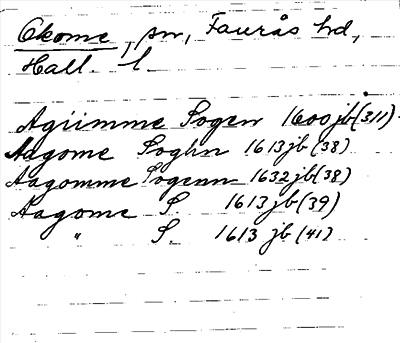 Okome, sn, Faurås hd,
Hall. l.
Agiimme Sogen 1600 jb (311)
Aagome Soghn 1613 jb (38)
Aagomme Sogenn 1632 jb (38)
Aagome S. 1613 jb (39)
" S. 1613 jb (41)